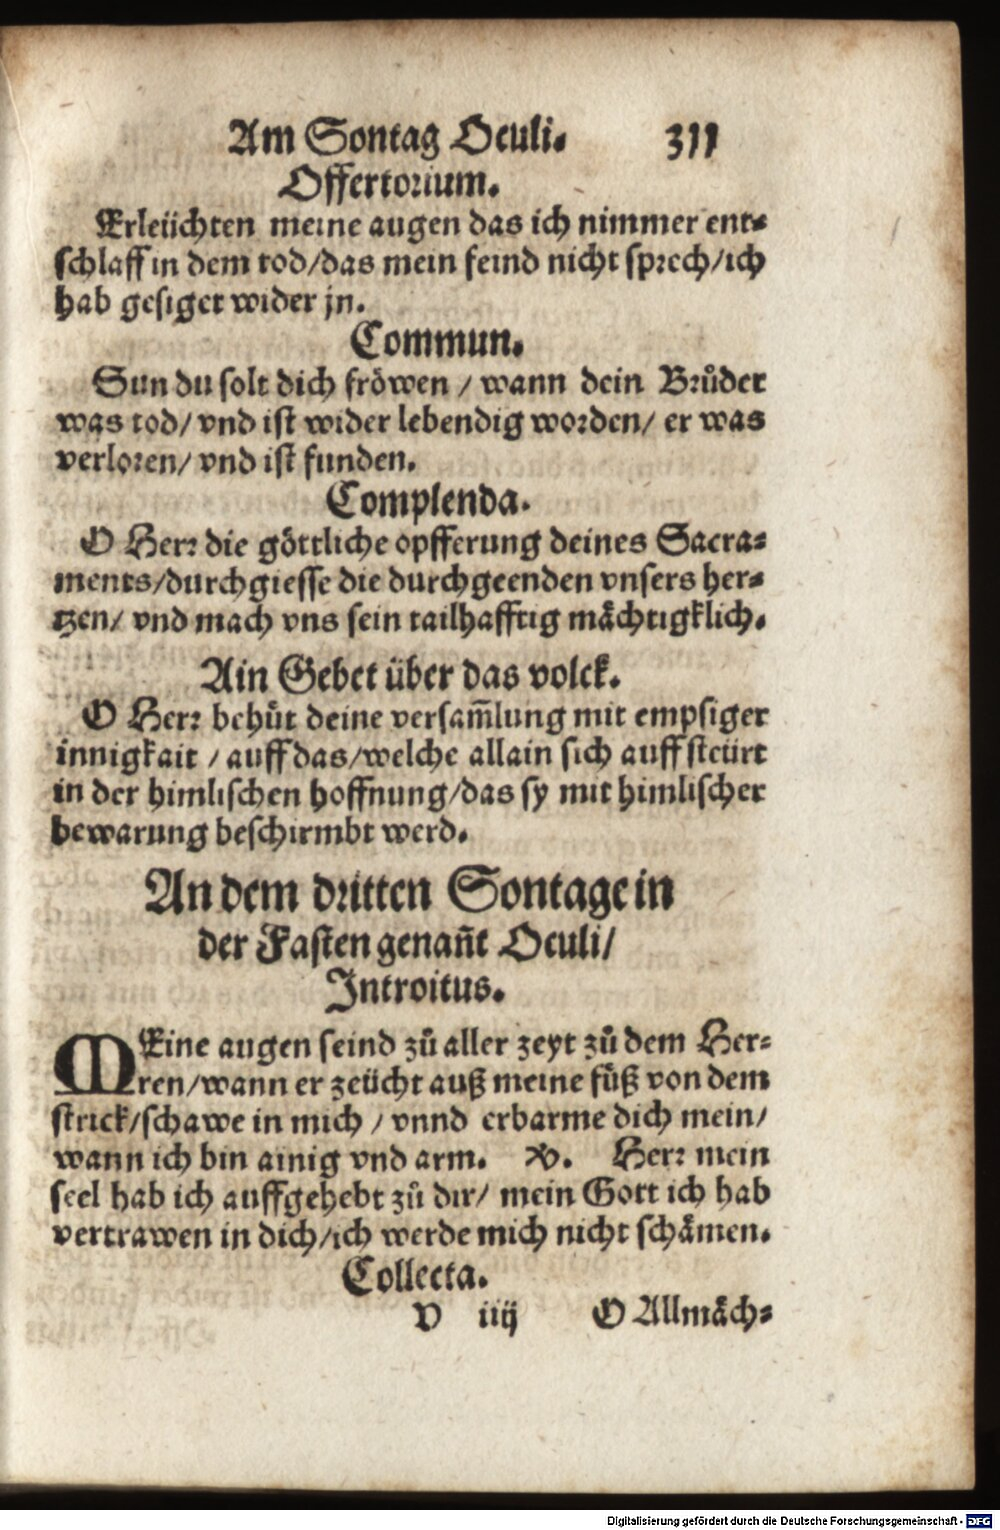 Am Sontag Oculi. 311
Offertorium.
Erleüchten meine augen das ich nimmer ent-
schlaff in dem tod/das mein feind nicht sprech/ich
hab gesiget wider jn.
Commun.
Sun du solt dich fröwen / wann dein Brůder
was tod/ vnd ist wider lebendig worden/ er was
verloren/ vnd ist funden.
Complenda.
O Herr die göttliche opfferung deines Sacra-
ments/durchgiesse die durchgeenden vnsers her-
tzen/ vnd mach vns sein tailhafftig mächtigklich.
Ain Gebet über das volck.
O Herr behüt deine versam̃lung mit empsiger
innigkait / auff das/welche allain sich auff steürt
in der himlischen hoffnung/das sy mit himlischer
bewarung beschirmbt werd.
An dem dritten Sontage in
der Fasten genañt Oculi/
Introitus.
MEine augen seind zů aller zeyt zů dem Her-
ren/wann er zeücht auß meine füß von dem
strick/schawe in mich / vnnd erbarme dich mein/
wann ich bin ainig vnd arm. V. Herr mein
seel hab ich auffgehebt zů dir/ mein Gott ich hab
vertrawen in dich/ich werde mich nicht schämen.
Collecta.
V iiij O Allmäch-
Digitalisierung gefördert durch die Deutsche Forschungsgemeinschaft - DFG